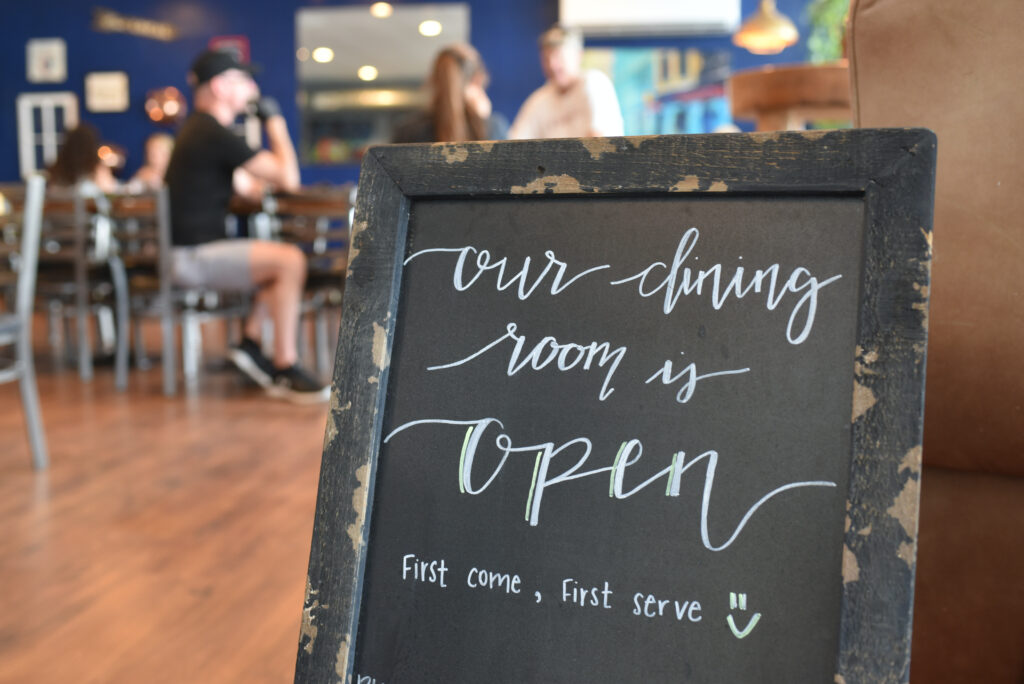 our dining
room is
open
First come, First serve